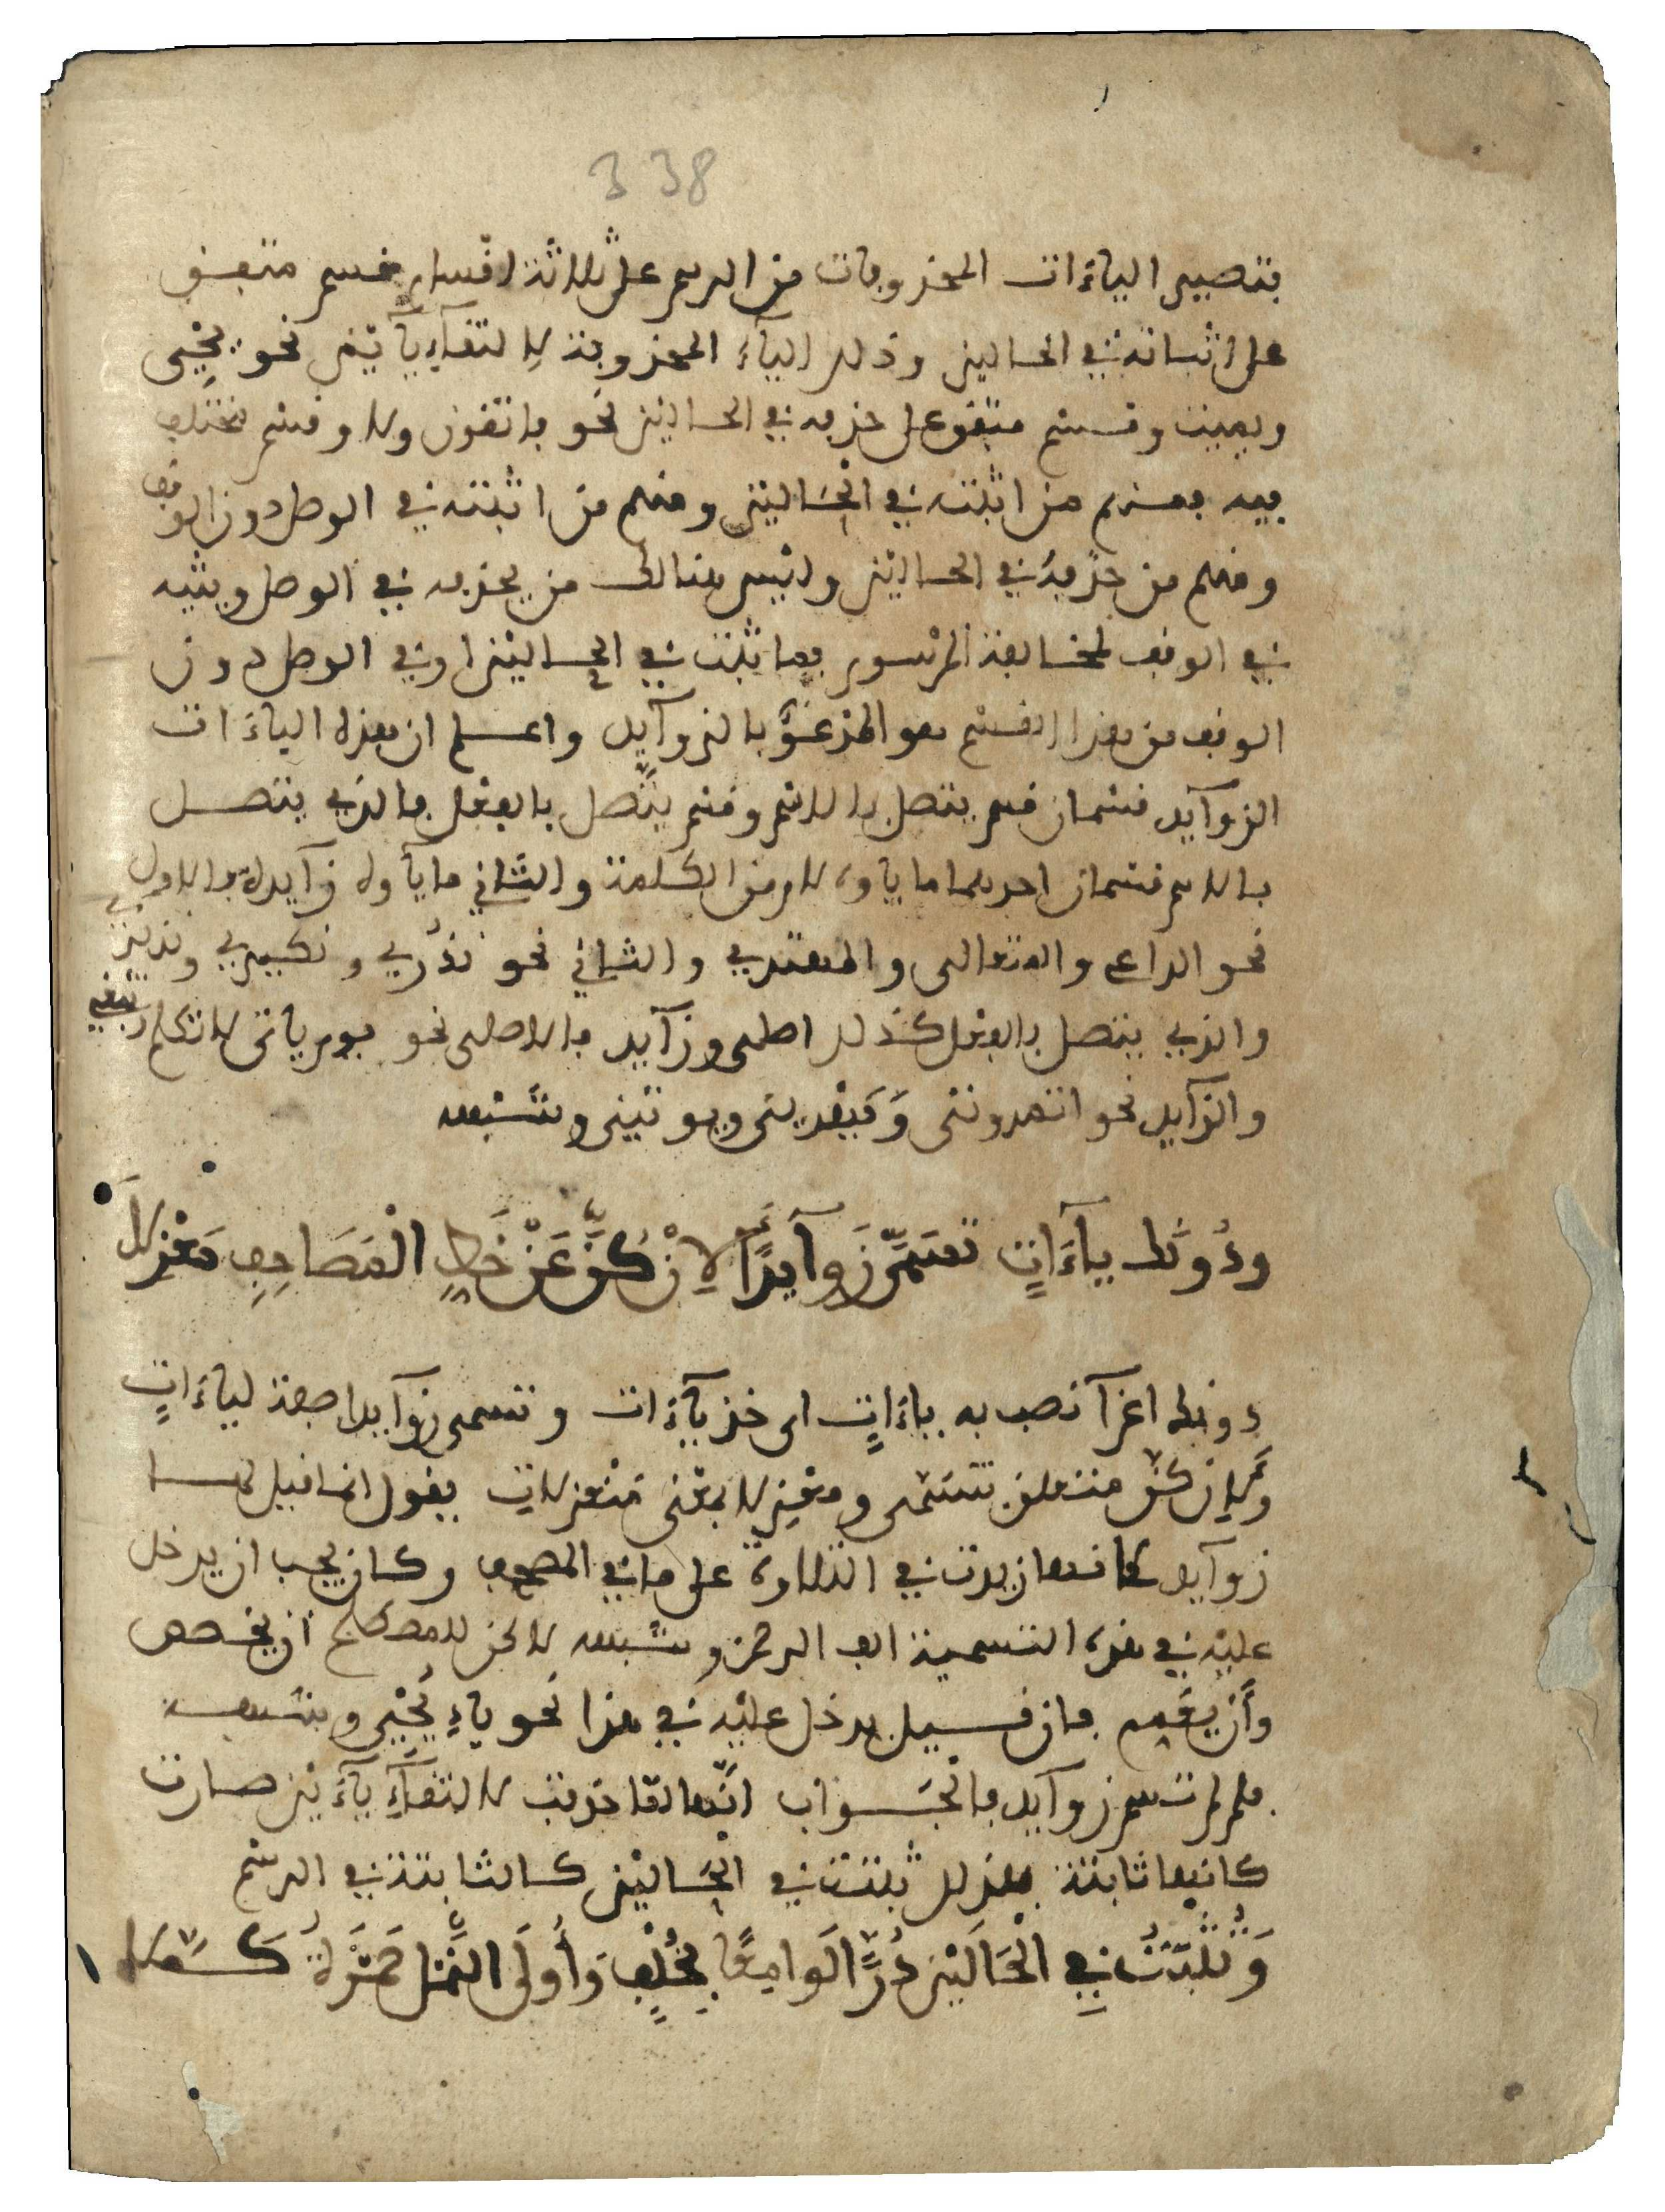 338
فتصير الياءات المحذوفات من الرسم على ثلاثة اقسام قسم متفق
على اثباته في الحالين وذلك الياء المحذوفة لالتقاء ياءين نحو يحيى
ويميت وقسم متفق على حذفه في الحالين نحو فاتقون ولا وقسم مختلف
فيه فمنهم من اثبته في الحالين ومنهم من اثبته في الوصل دون الوقف
ومنهم من حذفه في الحالين وليس هنالك من يحذفه في الوصل ويثبته
في الوقف لمخالفة المرسوم فما ثبت في الحالين او في الوصل دون
الوقف من هذا القسم هو المدعو بالزوآيد واعلم ان هذه الياءات
الزوآيد قسمان قسم يتصل بالاسم وقسم يتصل بالفعل فالذي يتصل
بالاسم قسمان احدهما ما ياوه لام من الكلمة والثاني ما يآوه زآيدة فالاول
نحو الداع والمتعالى والمهتدي والثاني نحو نذري ونكيري ونذير
والذي يتصل بالفعل كذلك اصلى وزآيد فالاصلى نحو يوم ياتى لا تكلم نبغي
والزآيد نحو اتمدوننى وَيهدينى ويوتينى وشبهه
ودُونَك ياءَاتٍ تسَمّى زَوآيدًا لِاَنْ كُنَّ عَنْ خَطِّ الْمَصَاحِفِ مَعْزِلَا
دونك اغرآ نصب به ياءاتٍ اى خذ يآءات وتسمى زوآيدا صفة لياءاتٍ
وَلِان كنّ متعلق بتسمى ومعزلا بمعنى منعزلات يقول انما قيل لها
زوآيد لانها زيدت في التلاوة على ما في المصحف وكان يجب ان يدخل
عليه في هذه التسمية الف الرحمن وشبهه لاكن للمصطلح ان يخصص
وأن يعمم فان قيل يدخل عليه في هذا نحو ياءِ يُحْيى وشبهه
فلم لم تسم زوآيد فالجواب انّها لمّا حذفت لالتقآء يآءين صارت
كانها ثابتة فلذلك ثبتت في الحالين كالثابتة في الرسم
وَتَثْبُتُ فِي الْحَالَيْنِ دُرًّا لَوَامِعًا بِخُلْفٍ وَأُولَى النَّمْل حَمْزَةُ كَمَّلَا